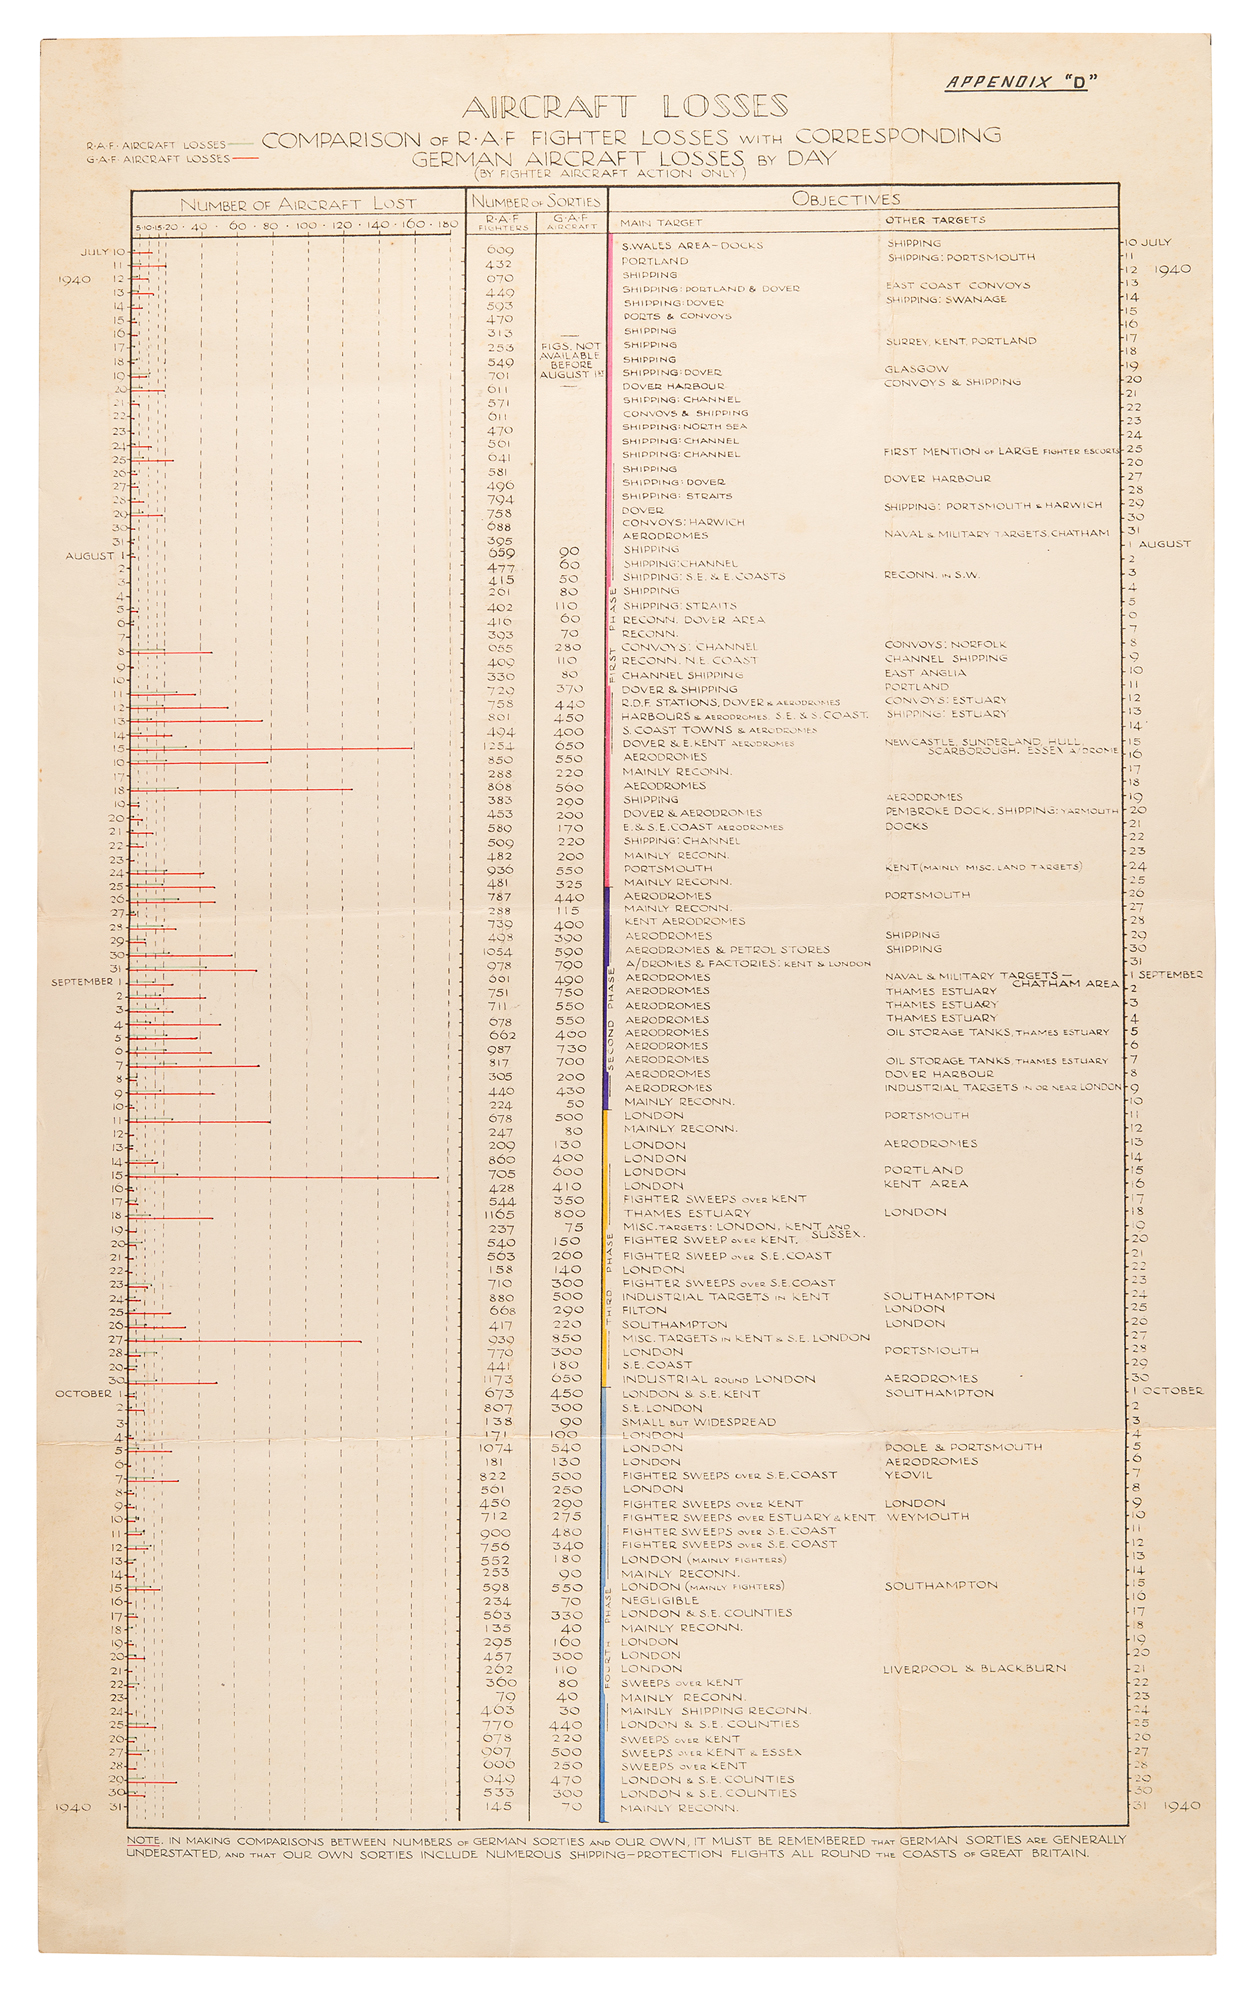 APPENDIX "D"
AIRCRAFT LOSSES
R·A·F· AIRCRAFT LOSSES
G·A·F· AIRCRAFT LOSSES
COMPARISON OF R·A·F FIGHTER LOSSES WITH CORRESPONDING
GERMAN AIRCRAFT LOSSES BY DAY
(BY FIGHTER AIRCRAFT ACTION ONLY)
NUMBER OF AIRCRAFT LOST NUMBER OF SORTIES OBJECTIVES
5·10·15·20 · 40 · 60 · 80 · 100 · 120 · 140 · 160 · 180 R·A·F FIGHTERS G·A·F AIRCRAFT MAIN TARGET OTHER TARGETS
JULY 10 609 S.WALES AREA–DOCKS SHIPPING 10 JULY
11 432 PORTLAND SHIPPING: PORTSMOUTH 11
1940 12 670 SHIPPING 12 1940
13 449 SHIPPING: PORTLAND & DOVER EAST COAST CONVOYS 13
14 593 SHIPPING: DOVER SHIPPING: SWANAGE 14
15 470 PORTS & CONVOYS 15
16 313 SHIPPING 16
17 253 FIGS. NOT SHIPPING SURREY, KENT, PORTLAND 17
18 549 AVAILABLE BEFORE SHIPPING 18
19 701 AUGUST 1ST SHIPPING: DOVER GLASGOW 19
20 611 DOVER HARBOUR CONVOYS & SHIPPING 20
21 571 SHIPPING: CHANNEL 21
22 611 CONVOYS & SHIPPING 22
23 470 SHIPPING: NORTH SEA 23
24 561 SHIPPING: CHANNEL 24
25 641 SHIPPING: CHANNEL FIRST MENTION OF LARGE FIGHTER ESCORTS 25
26 581 SHIPPING 26
27 496 SHIPPING: DOVER DOVER HARBOUR 27
28 794 SHIPPING: STRAITS 28
29 758 DOVER SHIPPING: PORTSMOUTH & HARWICH 29
30 688 CONVOYS: HARWICH 30
31 395 AERODROMES NAVAL & MILITARY TARGETS, CHATHAM 31
AUGUST 1 659 90 SHIPPING 1 AUGUST
2 477 60 SHIPPING: CHANNEL 2
3 415 50 SHIPPING: S.E. & E. COASTS RECONN. IN S.W. 3
4 261 80 SHIPPING 4
5 402 110 SHIPPING: STRAITS 5
6 416 60 RECONN. DOVER AREA 6
7 393 70 RECONN. 7
8 655 280 CONVOYS: CHANNEL CONVOYS: NORFOLK 8
9 409 110 RECONN. N.E. COAST CHANNEL SHIPPING 9
10 330 80 CHANNEL SHIPPING EAST ANGLIA 10
11 729 370 DOVER & SHIPPING PORTLAND 11
12 758 440 R.D.F. STATIONS, DOVER & AERODROMES CONVOYS: ESTUARY 12
13 801 450 HARBOURS & AERODROMES, S.E. & S. COAST. SHIPPING: ESTUARY 13
14 494 400 S. COAST TOWNS & AERODROMES 14
15 1254 650 DOVER & E. KENT AERODROMES NEWCASTLE, SUNDERLAND, HULL, 15
SCARBOROUGH, ESSEX A/DROME
16 850 550 AERODROMES 16
17 288 220 MAINLY RECONN. 17
18 868 560 AERODROMES 18
19 383 290 SHIPPING AERODROMES 19
20 453 200 DOVER & AERODROMES PEMBROKE DOCK, SHIPPING: YARMOUTH 20
21 589 170 E. & S.E. COAST AERODROMES DOCKS 21
22 509 220 SHIPPING: CHANNEL 22
23 482 200 MAINLY RECONN. 23
24 936 550 PORTSMOUTH KENT (MAINLY MISC. LAND TARGETS) 24
25 481 325 MAINLY RECONN. 25
26 787 440 AERODROMES PORTSMOUTH 26
27 288 115 MAINLY RECONN. 27
28 739 400 KENT AERODROMES 28
29 498 390 AERODROMES SHIPPING 29
30 1054 590 AERODROMES & PETROL STORES SHIPPING 30
31 978 790 A/DROMES & FACTORIES: KENT & LONDON 31
SEPTEMBER 1 661 490 AERODROMES NAVAL & MILITARY TARGETS – 1 SEPTEMBER
CHATHAM AREA
2 751 750 AERODROMES THAMES ESTUARY 2
3 711 550 AERODROMES THAMES ESTUARY 3
4 678 550 AERODROMES THAMES ESTUARY 4
5 662 400 AERODROMES OIL STORAGE TANKS, THAMES ESTUARY 5
6 987 730 AERODROMES 6
7 817 700 AERODROMES OIL STORAGE TANKS, THAMES ESTUARY 7
8 305 200 AERODROMES DOVER HARBOUR 8
9 440 430 AERODROMES INDUSTRIAL TARGETS IN OR NEAR LONDON 9
10 224 50 MAINLY RECONN. 10
11 678 500 LONDON PORTSMOUTH 11
12 247 80 MAINLY RECONN. 12
13 209 130 LONDON AERODROMES 13
14 860 400 LONDON 14
15 705 600 LONDON PORTLAND 15
16 428 410 LONDON KENT AREA 16
17 544 350 FIGHTER SWEEPS OVER KENT 17
18 1165 800 THAMES ESTUARY LONDON 18
19 237 75 MISC. TARGETS: LONDON, KENT AND SUSSEX. 19
20 540 150 FIGHTER SWEEP OVER KENT. 20
21 563 260 FIGHTER SWEEP OVER S.E. COAST 21
22 158 140 LONDON 22
23 710 300 FIGHTER SWEEPS OVER S.E. COAST 23
24 880 500 INDUSTRIAL TARGETS IN KENT SOUTHAMPTON 24
25 668 290 FILTON LONDON 25
26 417 220 SOUTHAMPTON LONDON 26
27 939 850 MISC. TARGETS IN KENT & S.E. LONDON 27
28 770 300 LONDON PORTSMOUTH 28
29 441 180 S.E. COAST 29
30 1173 650 INDUSTRIAL ROUND LONDON AERODROMES 30
OCTOBER 1 673 450 LONDON & S.E. KENT SOUTHAMPTON 1 OCTOBER
2 807 300 S.E. LONDON 2
3 138 90 SMALL BUT WIDESPREAD 3
4 171 100 LONDON 4
5 1074 540 LONDON POOLE & PORTSMOUTH 5
6 181 130 LONDON AERODROMES 6
7 822 500 FIGHTER SWEEPS OVER S.E. COAST YEOVIL 7
8 561 250 LONDON 8
9 456 290 FIGHTER SWEEPS OVER KENT LONDON 9
10 712 275 FIGHTER SWEEPS OVER ESTUARY & KENT WEYMOUTH 10
11 900 480 FIGHTER SWEEPS OVER S.E. COAST 11
12 756 340 FIGHTER SWEEPS OVER S.E. COAST 12
13 552 180 LONDON (MAINLY FIGHTERS) 13
14 253 90 MAINLY RECONN. 14
15 598 550 LONDON (MAINLY FIGHTERS) SOUTHAMPTON 15
16 234 70 NEGLIGIBLE 16
17 563 330 LONDON & S.E. COUNTIES 17
18 135 40 MAINLY RECONN. 18
19 295 160 LONDON 19
20 457 300 LONDON 20
21 262 110 LONDON LIVERPOOL & BLACKBURN 21
22 360 80 SWEEPS OVER KENT 22
23 79 40 MAINLY RECONN. 23
24 463 30 MAINLY SHIPPING RECONN. 24
25 770 440 LONDON & S.E. COUNTIES 25
26 678 220 SWEEPS OVER KENT 26
27 907 500 SWEEPS OVER KENT & ESSEX 27
28 600 250 SWEEPS OVER KENT 28
29 649 470 LONDON & S.E. COUNTIES 29
30 533 300 LONDON & S.E. COUNTIES 30
1940 31 145 70 MAINLY RECONN. 31 1940
FIRST PHASE
SECOND PHASE
THIRD PHASE
FOURTH PHASE
NOTE. IN MAKING COMPARISONS BETWEEN NUMBERS OF GERMAN SORTIES AND OUR OWN, IT MUST BE REMEMBERED THAT GERMAN SORTIES ARE GENERALLY
UNDERSTATED, AND THAT OUR OWN SORTIES INCLUDE NUMEROUS SHIPPING–PROTECTION FLIGHTS ALL ROUND THE COASTS OF GREAT BRITAIN.